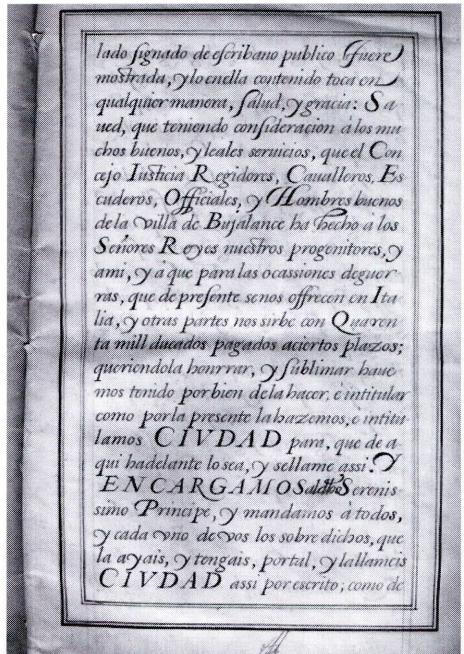 lado signado de escribano publico fuere
mostrada, y lo enella contenido toca en
qualquier manera, salud, y gracia: Sa
ued, que teniendo consideraçion à los mu
chos buenos, y leales seruicios, que el Con
cejo Iusticia Regidores, Caualleros, Es
cuderos, Officiales, y Hombres buenos
de la villa de Bujalance ha hecho à los
Señores Reyes nuestros progenitores, y
ami, y à que para las ocassiones deguer
ras, que de presente senos offrecen en Ita
lia, y otras partes nos sirbe con Quaren
ta mill ducados pagados aciertos plazos;
queriendola honrrar, y sublimar haue
mos tenido por bien de la hacer, e intitular
como por la presente la hazemos, e intitu
lamos CIVDAD para, que de a
qui hadelante lo sea, y sellame assi: Y
ENCARGAMOS Serenis
simo Principe, y mandamos à todos,
y cada vno de vos los sobre dichos, que
la ayais, y tengais, portal, y lallameis
CIVDAD assi por escrito; como de